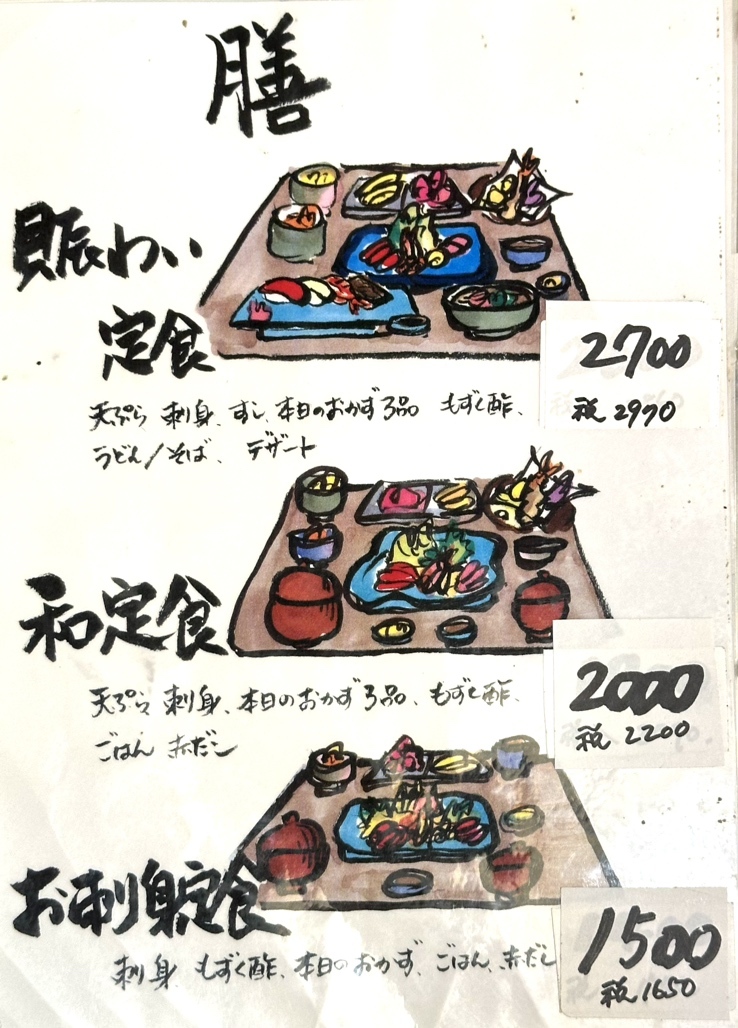 膳
賑わい
定食
2700
税 2970
天ぷら 刺身、すし、本日のおかず3品 もずく酢、
うどん/そば、 デザート
和定食
2000
税 2200
天ぷら 刺身、本日のおかず3品、もずく酢、
ごはん 赤だし
お刺身定食
1500
税 1650
刺身 もずく酢、本日のおかず、ごはん、赤だし